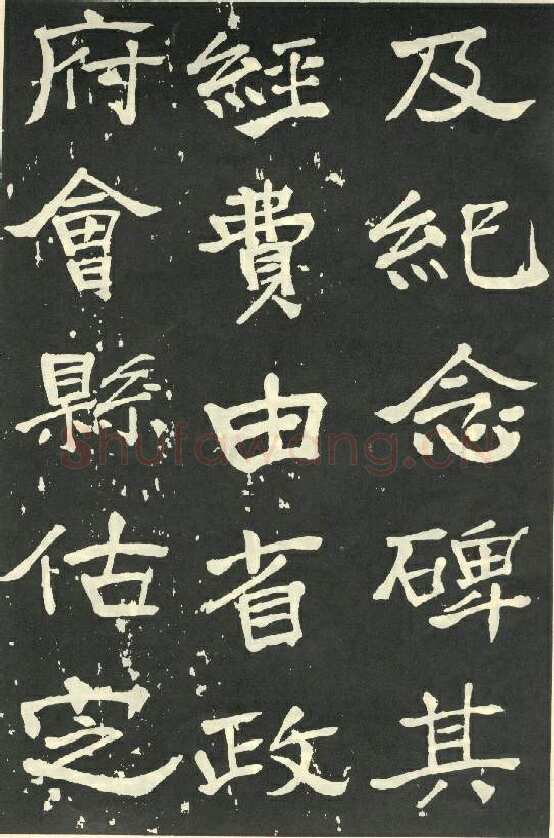 及紀念碑其
經費由省政
府會縣估定
Shufawang.cn